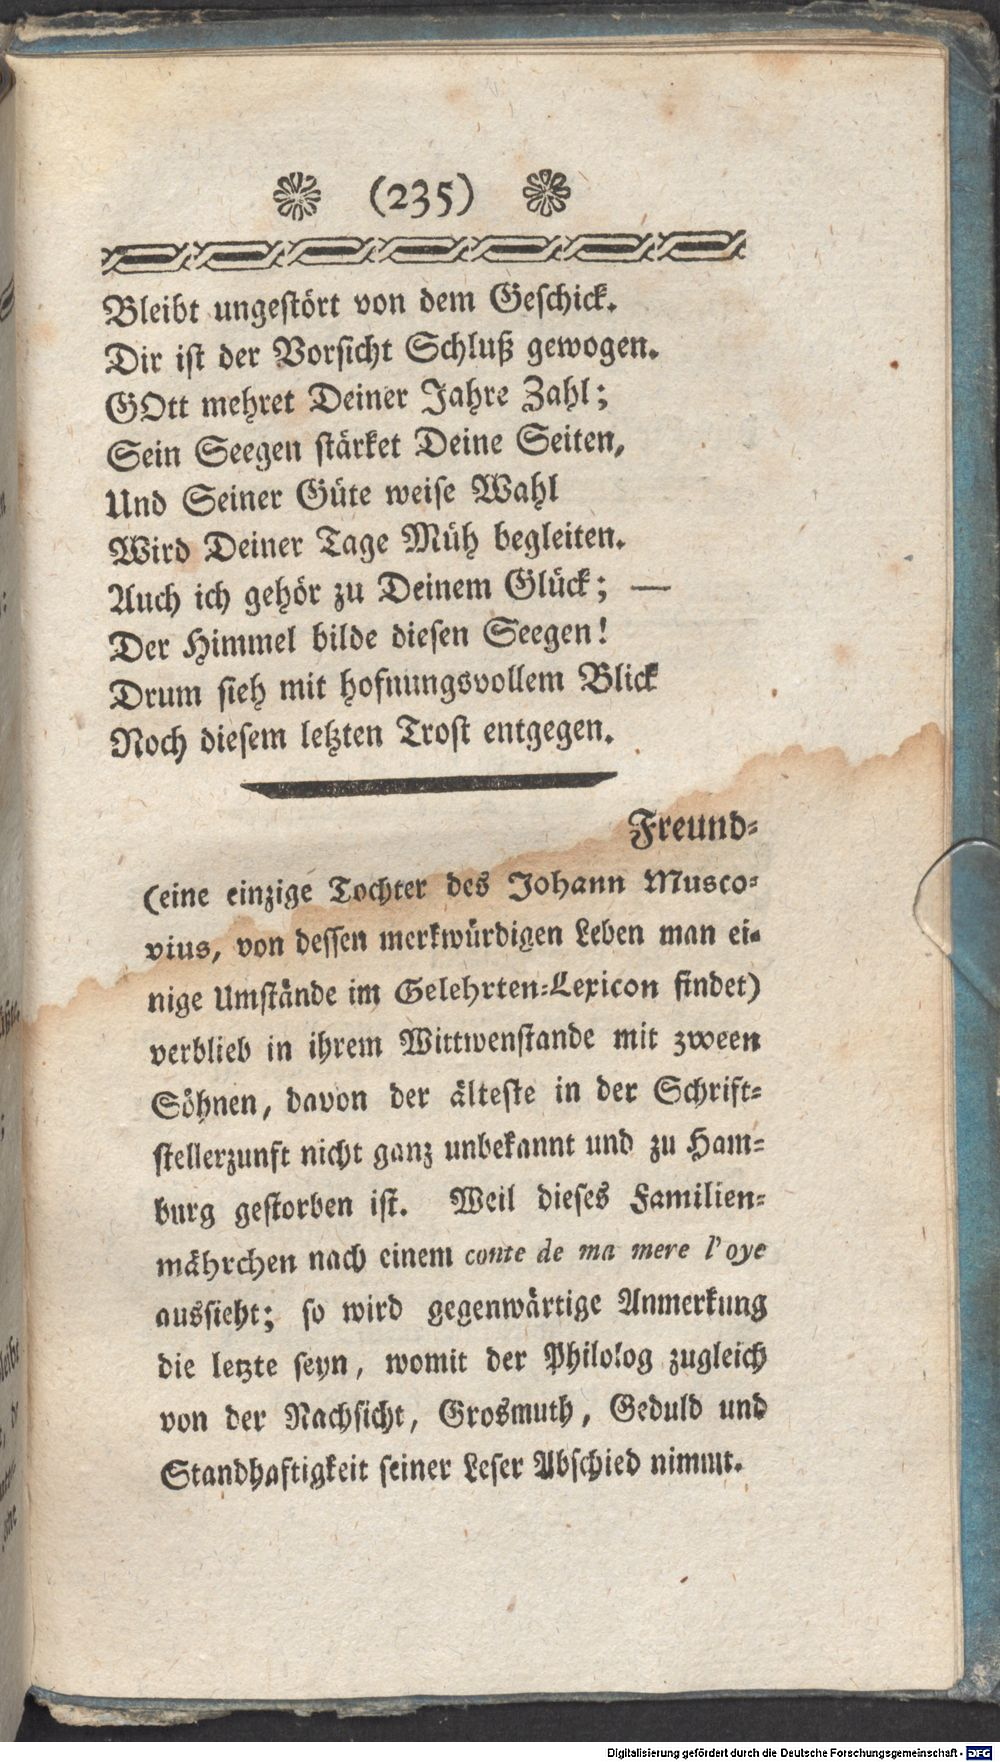 (235)
Bleibt ungestört von dem Geschick.
Dir ist der Vorsicht Schluß gewogen.
GOtt mehret Deiner Jahre Zahl;
Sein Seegen stärket Deine Seiten,
Und Seiner Güte weise Wahl
Wird Deiner Tage Müh begleiten.
Auch ich gehör zu Deinem Glück; —
Der Himmel bilde diesen Seegen!
Drum sieh mit hofnungsvollem Blick
Noch diesem letzten Trost entgegen.
Freund-
(eine einzige Tochter des Johann Musco-
vius, von dessen merkwürdigen Leben man ei-
nige Umstände im Gelehrten-Lexicon findet)
verblieb in ihrem Wittwenstande mit zween
Söhnen, davon der älteste in der Schrift-
stellerzunft nicht ganz unbekannt und zu Ham-
burg gestorben ist. Weil dieses Familien-
mährchen nach einem conte de ma mere l'oye
aussieht; so wird gegenwärtige Anmerkung
die letzte seyn, womit der Philolog zugleich
von der Nachsicht, Grosmuth, Geduld und
Standhaftigkeit seiner Leser Abschied nimmt.
Digitalisierung gefördert durch die Deutsche Forschungsgemeinschaft - DFG